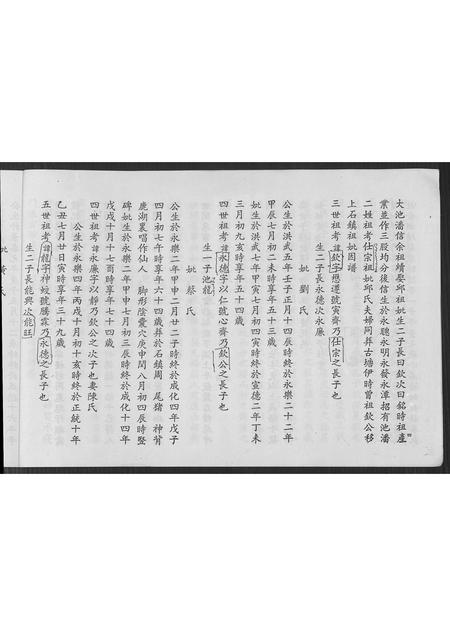 大池潘信余祖續娶邱祖妣生二子長曰欽次曰銘時祖產
業並作三股均分後信生於永聰永明永發永潭招有池潘
二姓祖考仕宗祖妣邱氏夫婦同葬古塘伊時曾祖欽公移
上石鎮祖妣因譜
三世祖考諱欽字懋遜號寅齋乃仕宗之長子也
生二子長永德次永廉
妣劉氏
公生於洪武五年壬子正月十四辰時終於永樂二十二年
甲辰七月初二未時享年五十三歲
妣生於洪武七年甲寅七月初四寅時終於宣德二年丁未
三月初九亥時享年五十四歲
四世祖考諱永德字以仁號心齋乃欽公之長子也
生一子池龍
妣蔡氏
公生於永樂二年甲申二月廿二子時終於成化四年戊子
四月初七午時享年六十四歲葬於石鎮周尾猪神背
鹿湖裏唱作仙人脚形陰囊穴庚申閏八月初四辰時竪
碑妣生於永樂二年甲申七月初三辰時終於成化十四年
戊戌十月十七酉時享年七十四歲
四世祖考諱永廉字以靜乃欽公之次子也妻陳氏
公生於永樂四年丙戌十月初十亥時終於正統十年
乙丑七月廿日寅時享年三十九歲
生二子長能興次能旺
五世祖考諱龍字神蛟號騰霖乃永德之長子也
妣黃氏